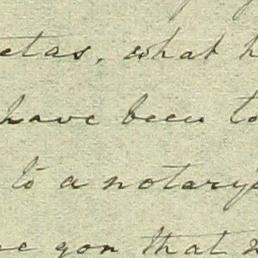 etas, what h
have been to
to a notary's
e you that